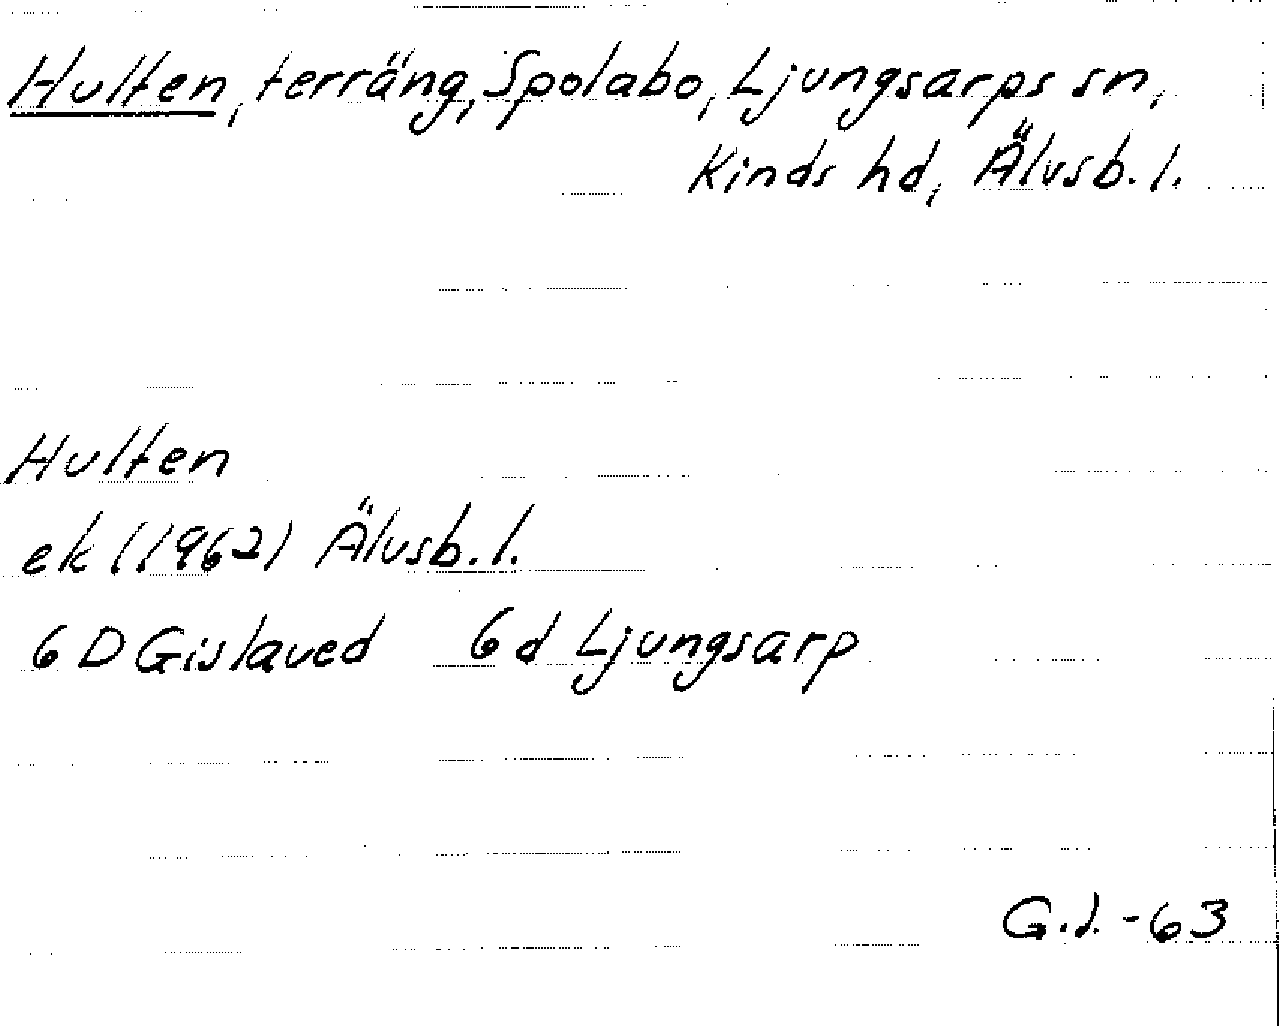 Hulten, terräng, Spolabo, Ljungsarps sn,
Kinds hd, Älvsb. l.
Hulten
ek (1962) Älvsb. l.
6 D Gislaved 6 d Ljungsarp
G.J. -63